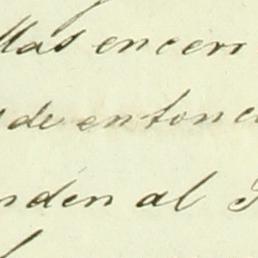 llas encerr
de entonc
nden al